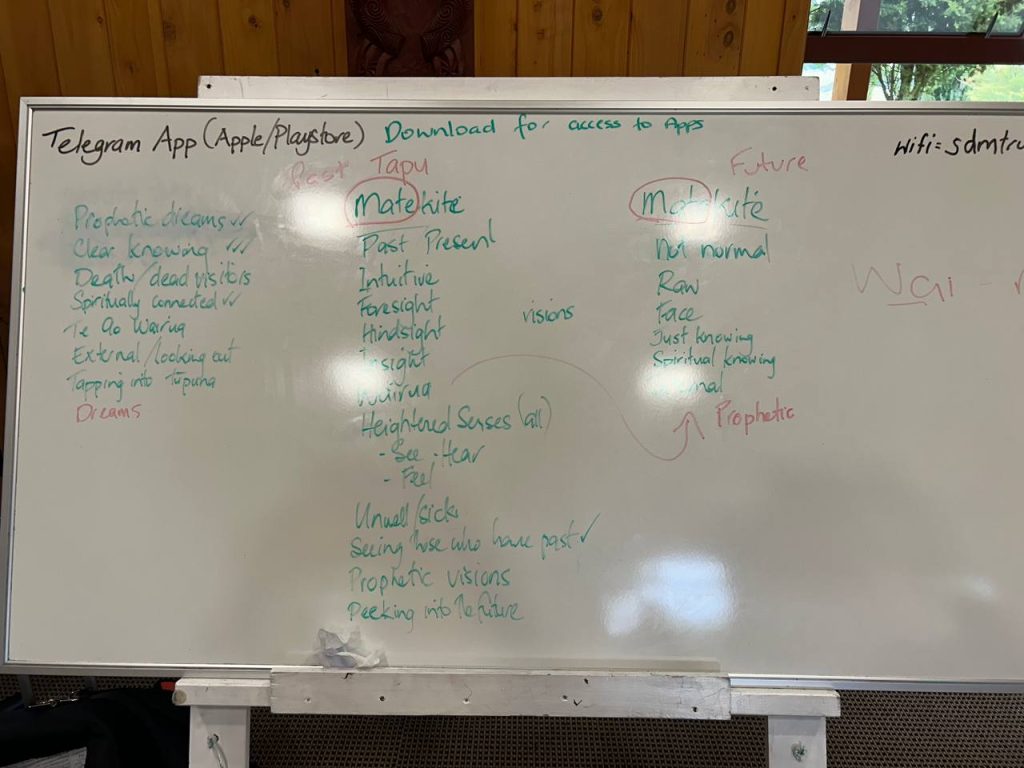 Telegram App (Apple/Playstore) Download for access to Apps
Wifi = sdmtru
Past Tapu
Future
Prophetic dreams ✓✓
Clear knowing ✓✓✓
Death/dead visitors
Spiritually connected ✓✓
Te Ao Wairua
External/looking out
Tapping into Tupuna
Dreams
Matekite
Past Present
Intuitive
Foresight
Hindsight
Insight
Wairua
Heightened Senses (all)
- See - Hear
- Feel
Unwell/sick
Seeing those who have past ✓
Prophetic visions
Peeking into the future
visions
Matakite
Not normal
Raw
Face
Just knowing
Spiritual knowing
Prophetic
Wai -